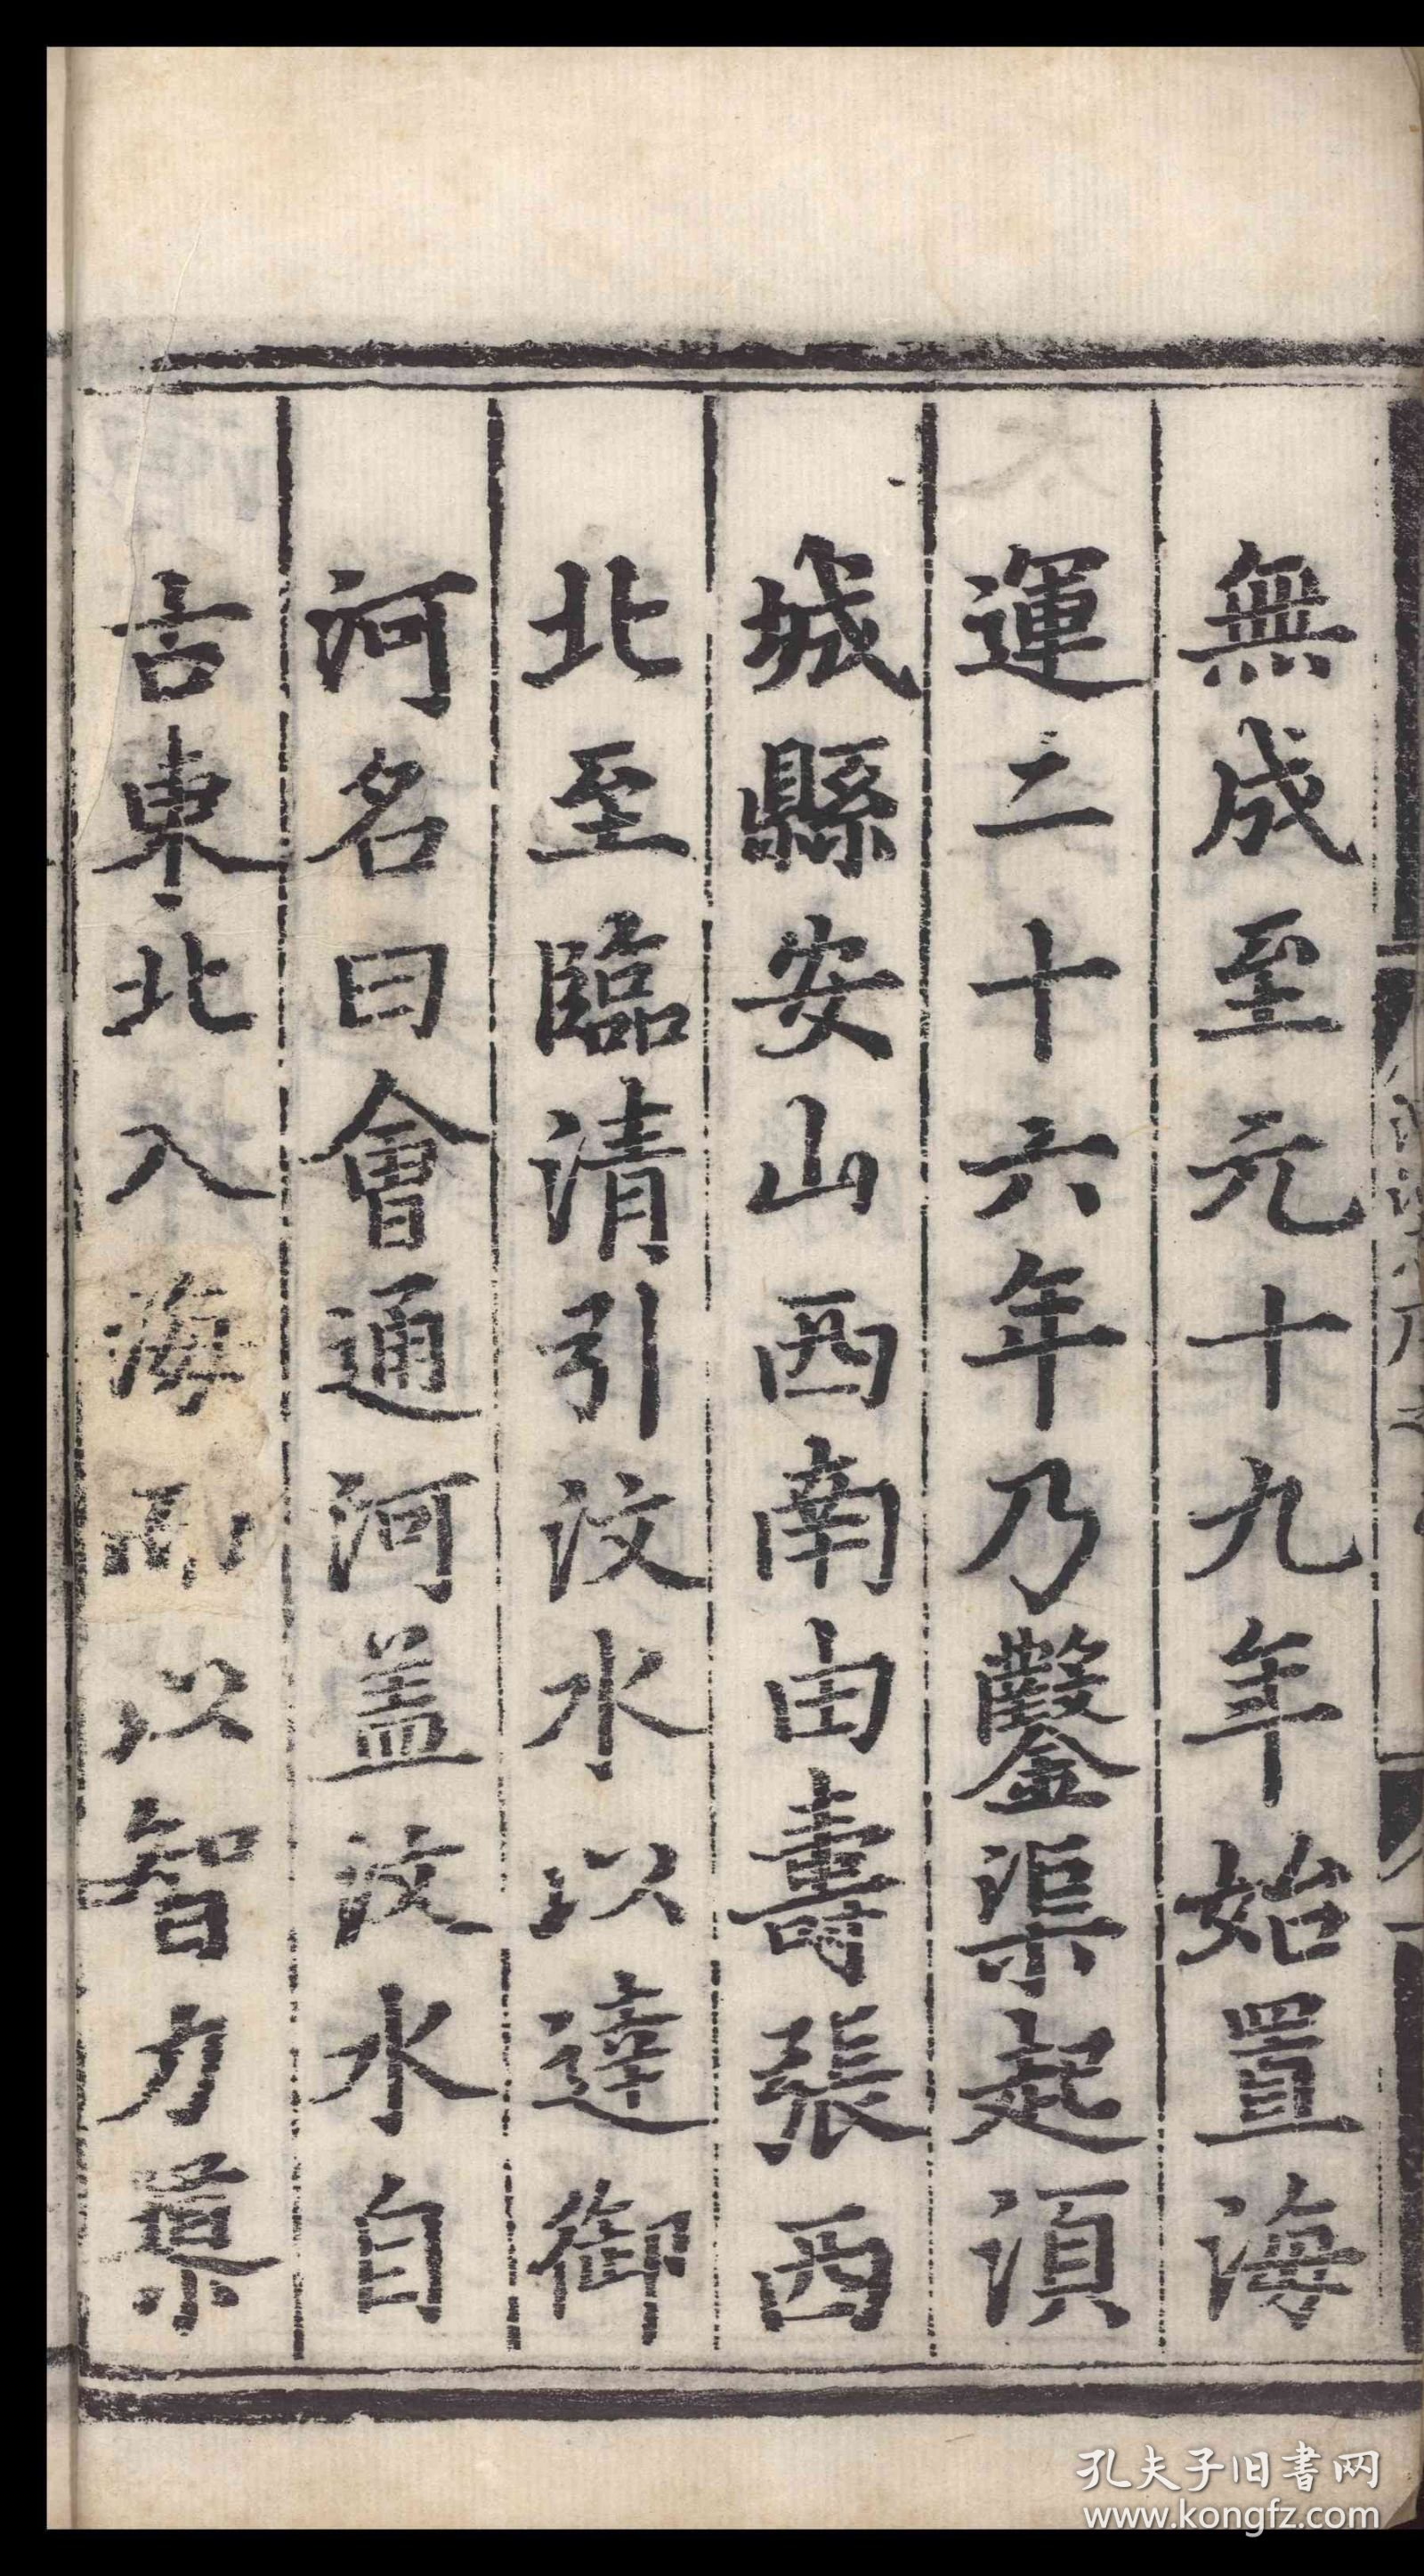 無成至元十九年始置海
運二十六年乃鑿渠起湏
城縣安山西南由壽張西
北至臨清引汶水以達御
河名曰會通河盖汶水自
古東北入海而以智力導
孔夫子旧書网
www.kongfz.com